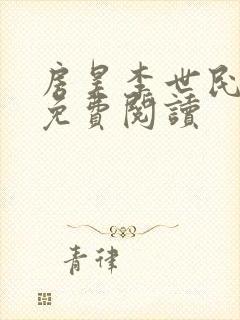 唐皇李世民
免費閱讀
青律